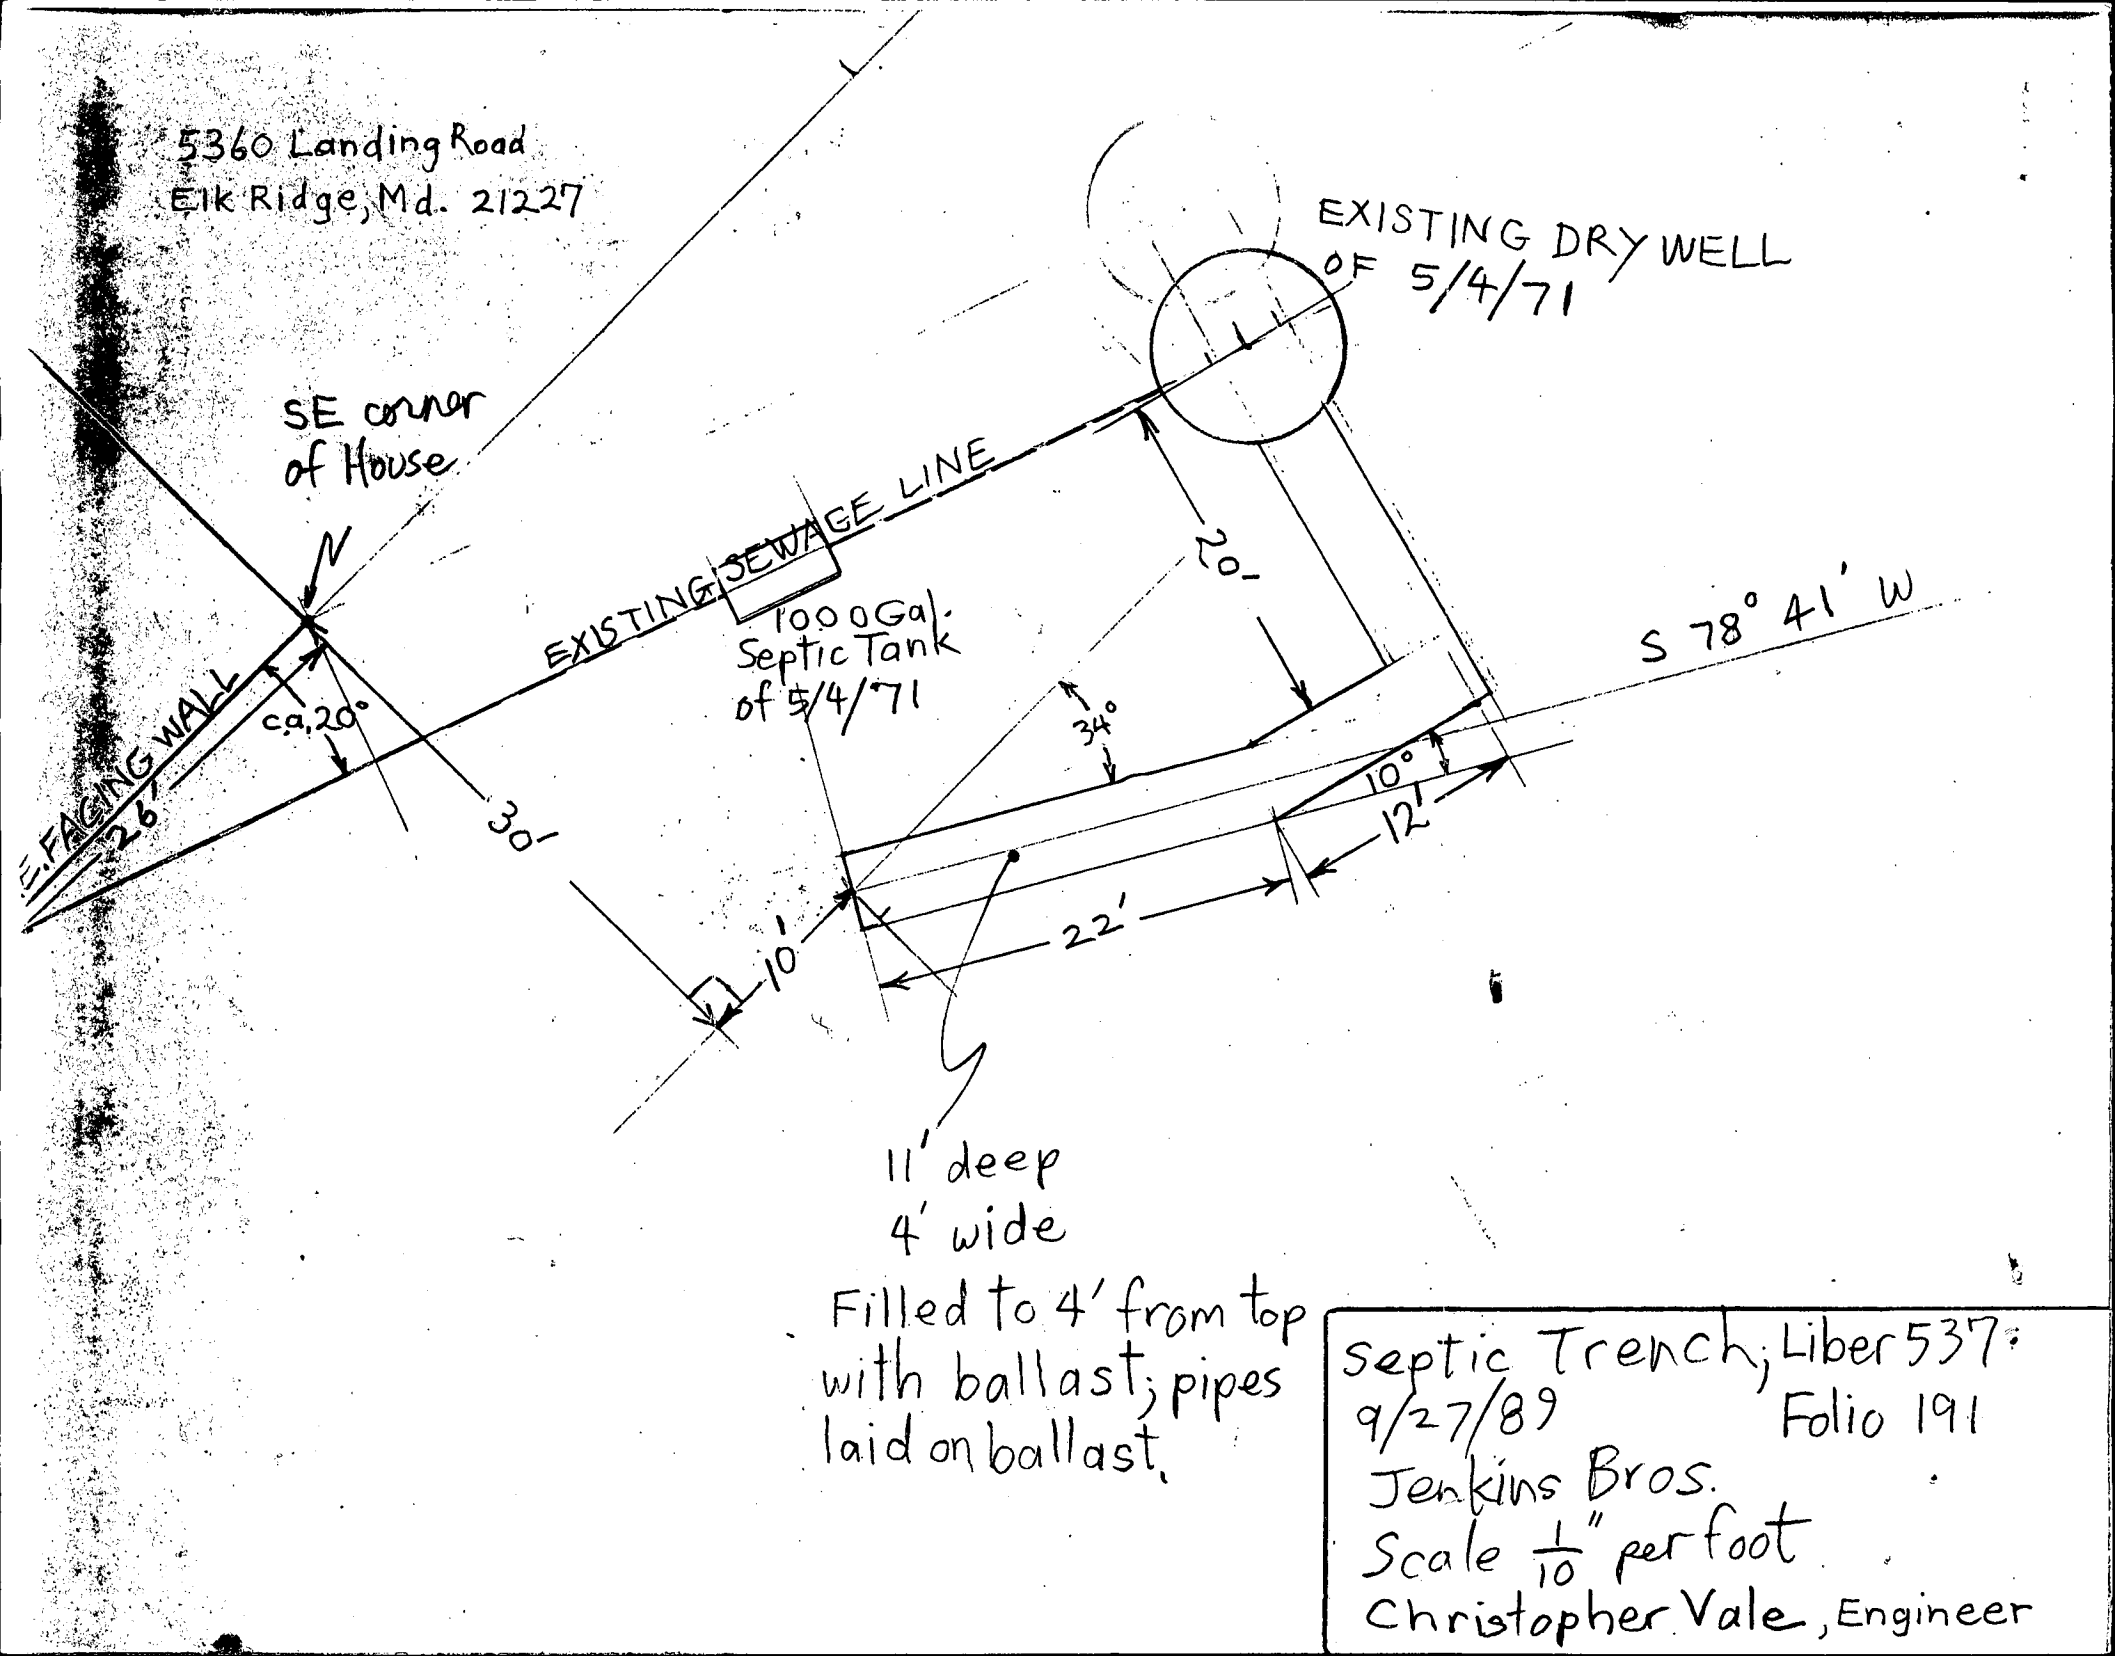 5360 Landing Road
Elk Ridge, Md. 21227
EXISTING DRY WELL
OF 5/4/71
SE corner
of House
EXISTING SEWAGE LINE
1000 Gal.
Septic Tank
of 5/4/71
20'
S 78° 41' W
34°
ca. 20°
.E. FACING WALL
26'
30'
10°
12'
22'
10'
11' deep
4' wide
Filled to 4' from top
with ballast; pipes
laid on ballast.
Septic Trench; Liber 537
9/27/89 Folio 191
Jenkins Bros.
Scale 1/10" per foot
Christopher Vale, Engineer